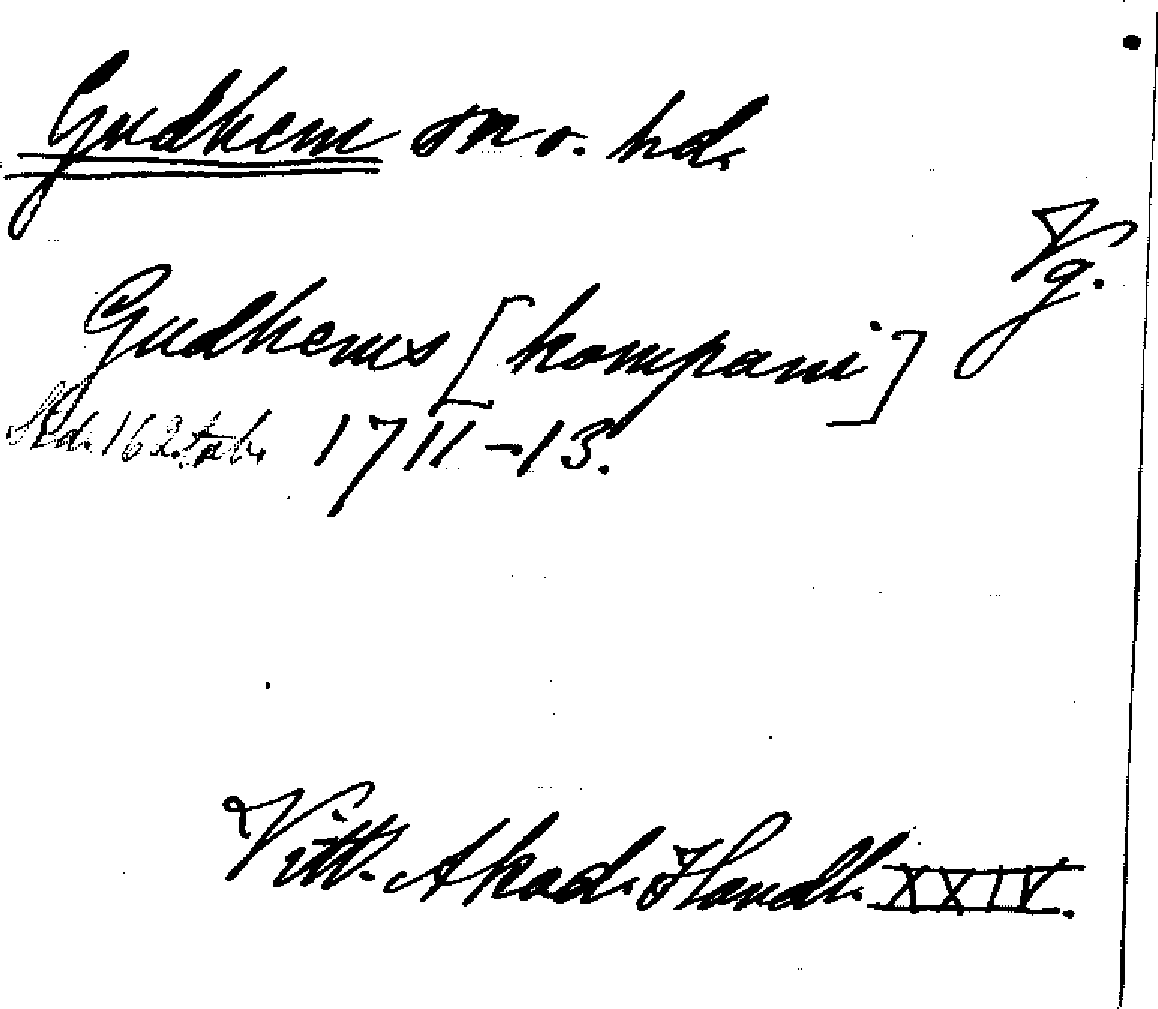 Gudhem sn o. hd.
Vg.
Gudhems [kompani]
Sid. 162 tab. 1711-13.
Vitt. Akad. Handl. XXIV.